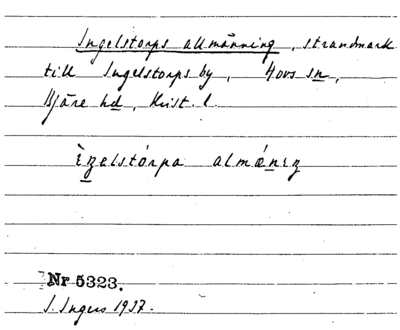 Ingelstorps allmänning, strandmark
till Ingelstorps by, Hovs sn,
Bjäre hd, Krist. l.
almǽnız
Nr 5323.
I. Ingers 1937.